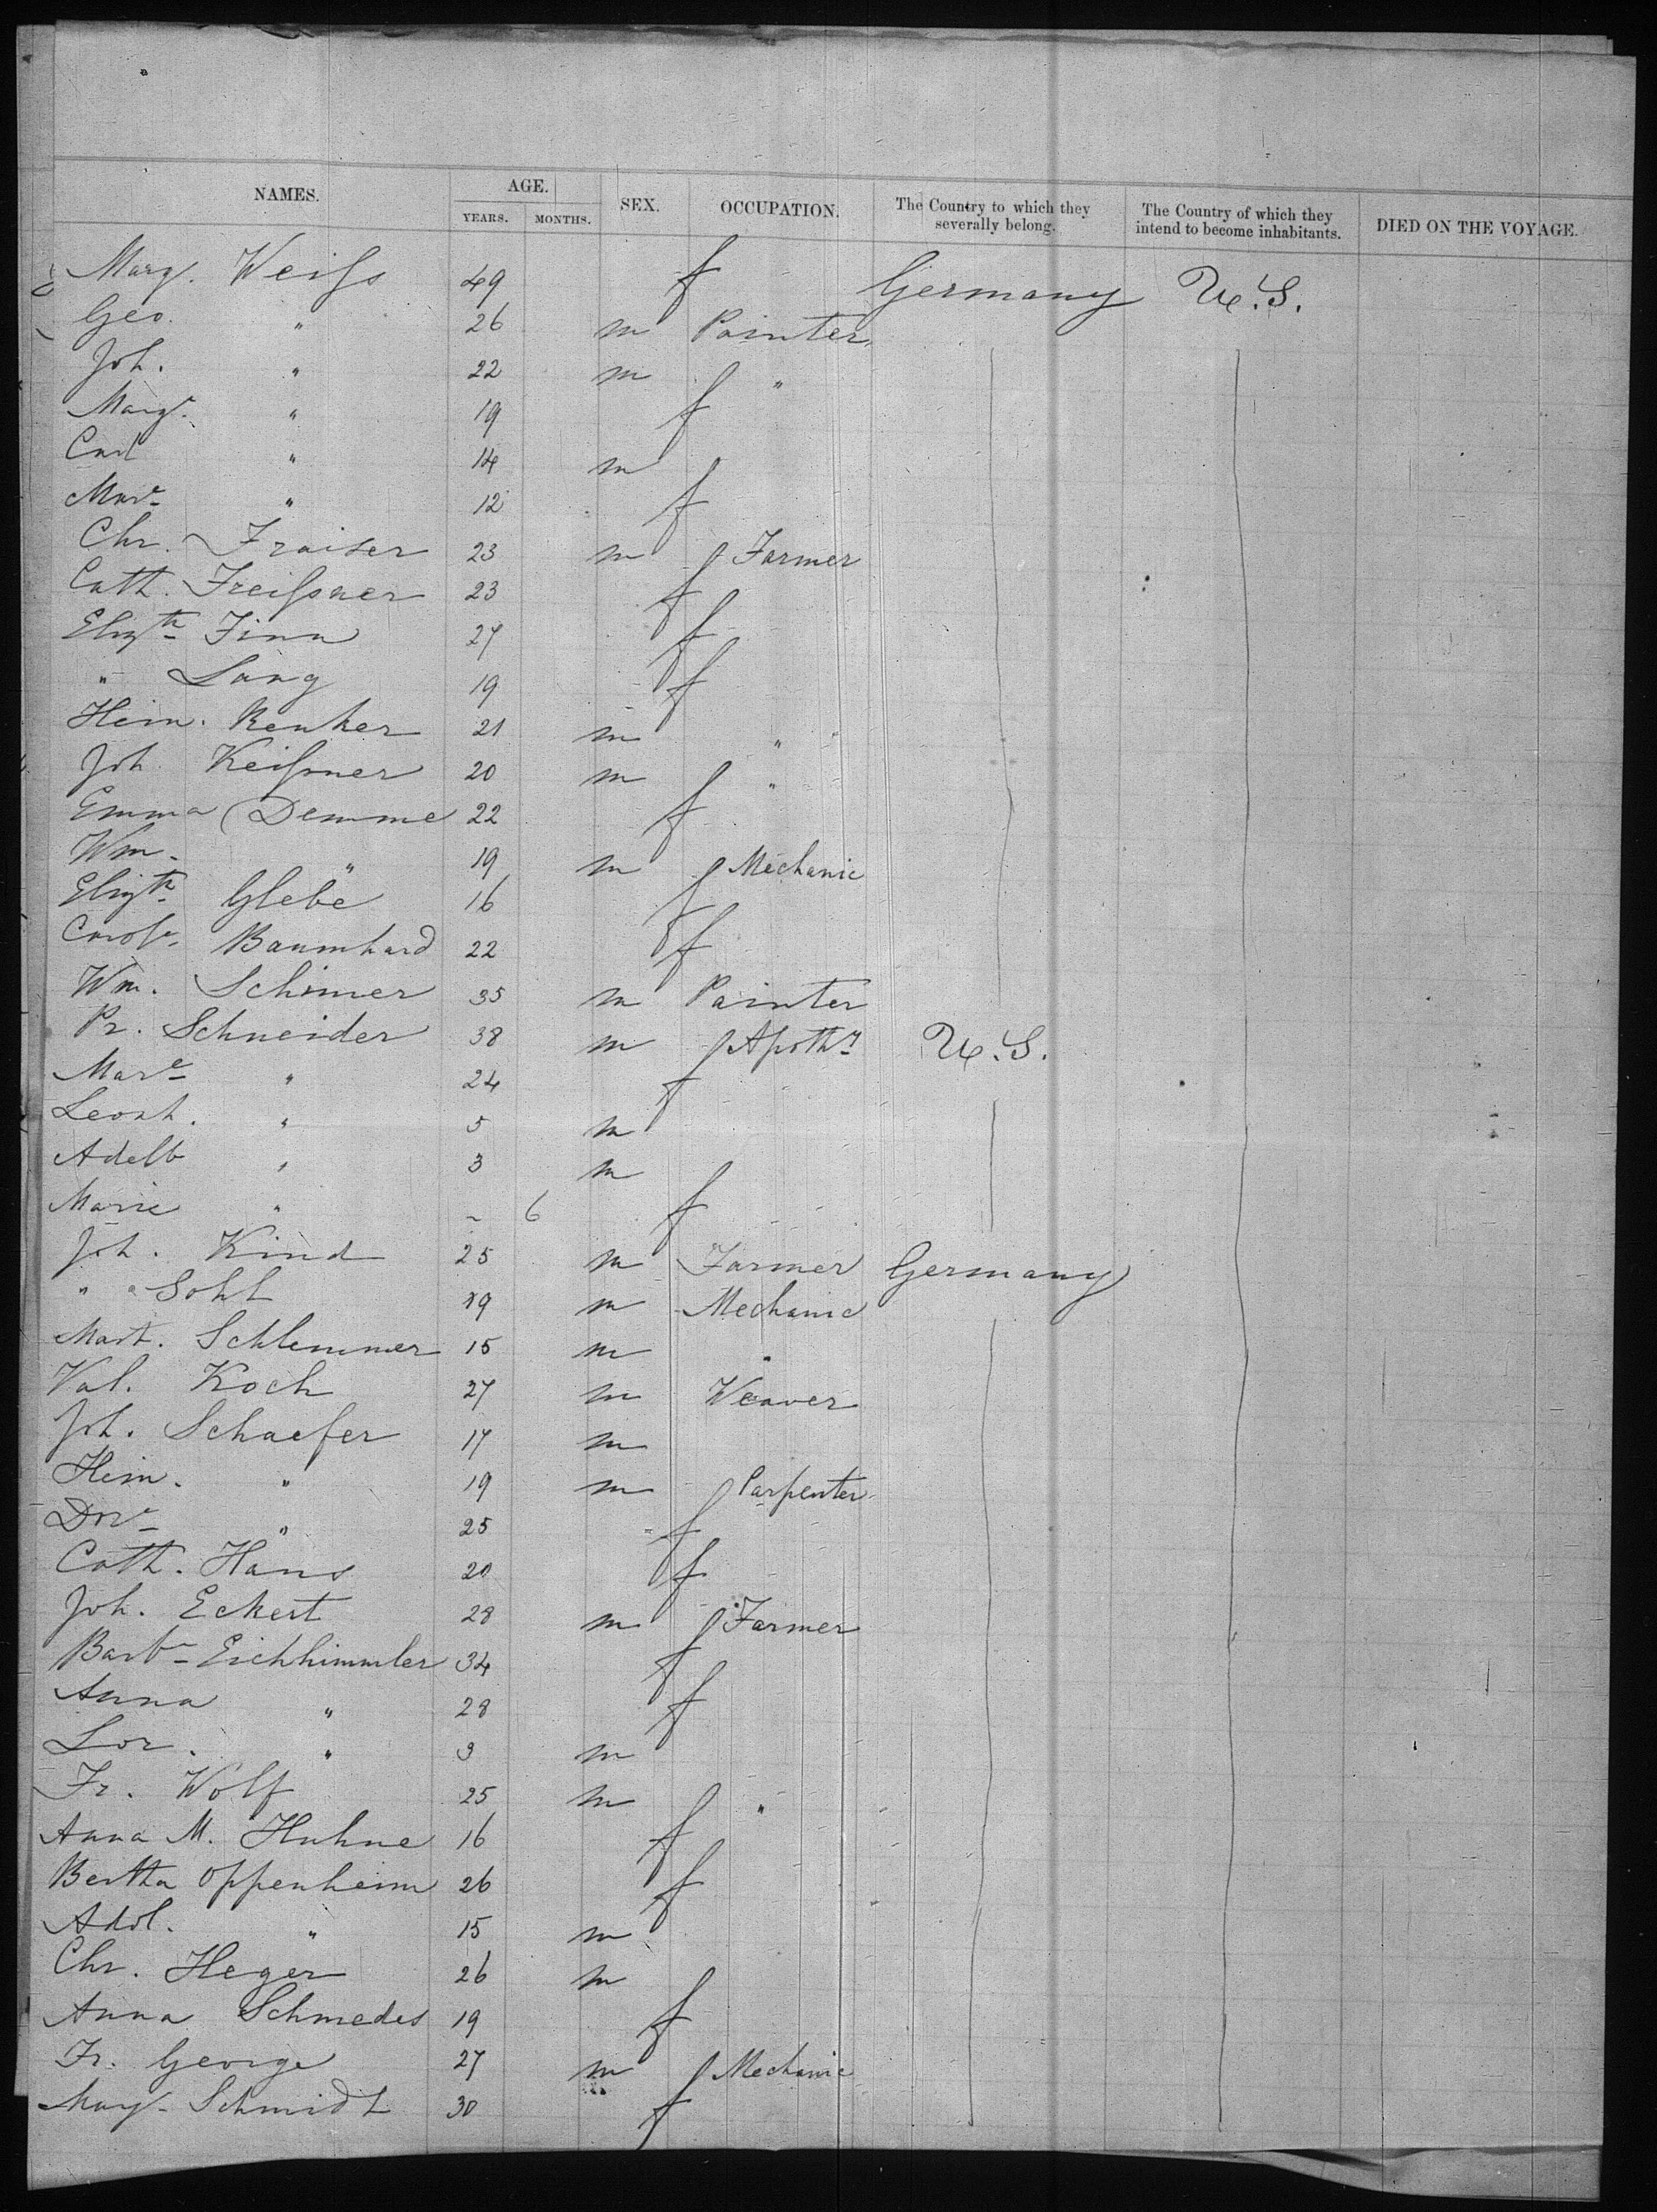 NAMES. AGE. SEX. OCCUPATION. The Country to which they severally belong. The Country of which they intend to become inhabitants. DIED ON THE VOYAGE.
YEARS. MONTHS.
Marg. Weiſs 49 f Germany U.S.
Geo. " 26 m Painter
Joh. " 22 m "
Margt. " 19 f
Carl " 14 m
Mare " 12 f
Chr. Fraiser 23 m Farmer
Cath. Freiſsner 23 f
Elizth Finn 27 f
" Lang 19 f
Hein. Renker 21 m "
Joh. Keiſsner 20 m "
Emma Demme 22 f
Wm. " 19 m Mechanic
Elizth Glebe 16 f
Carole. Baumhard 22 f
Wm. Schimer 35 m Painter
Pr. Schneider 38 m Apothy U.S.
Mare " 24 f
Leonh. " 5 m
Adelb " 3 m
Marie " ~ 6 f
Joh. Kind 25 m Farmer Germany
" Sohl 19 m Mechanic
Mart. Schlemmer 15 m "
Val. Koch 27 m Weaver
Joh. Schaefer 17 m
Hein. " 19 m Carpenter
Dore " 25 f
Cath. Hans 20 f
Joh. Eckert 28 m Farmer
Barba Eichhimmler 34 f
Anna " 28 f
Lor. " 9 m
Fr. Wolf 25 m "
Anna M. Huhne 16 f
Bertha Oppenheim 26 f
Adol. " 15 m
Chr. Heger 26 m
Anna Schmedes 19 f
Fr. George 27 m Mechanic
Marg. Schmidt 30 f